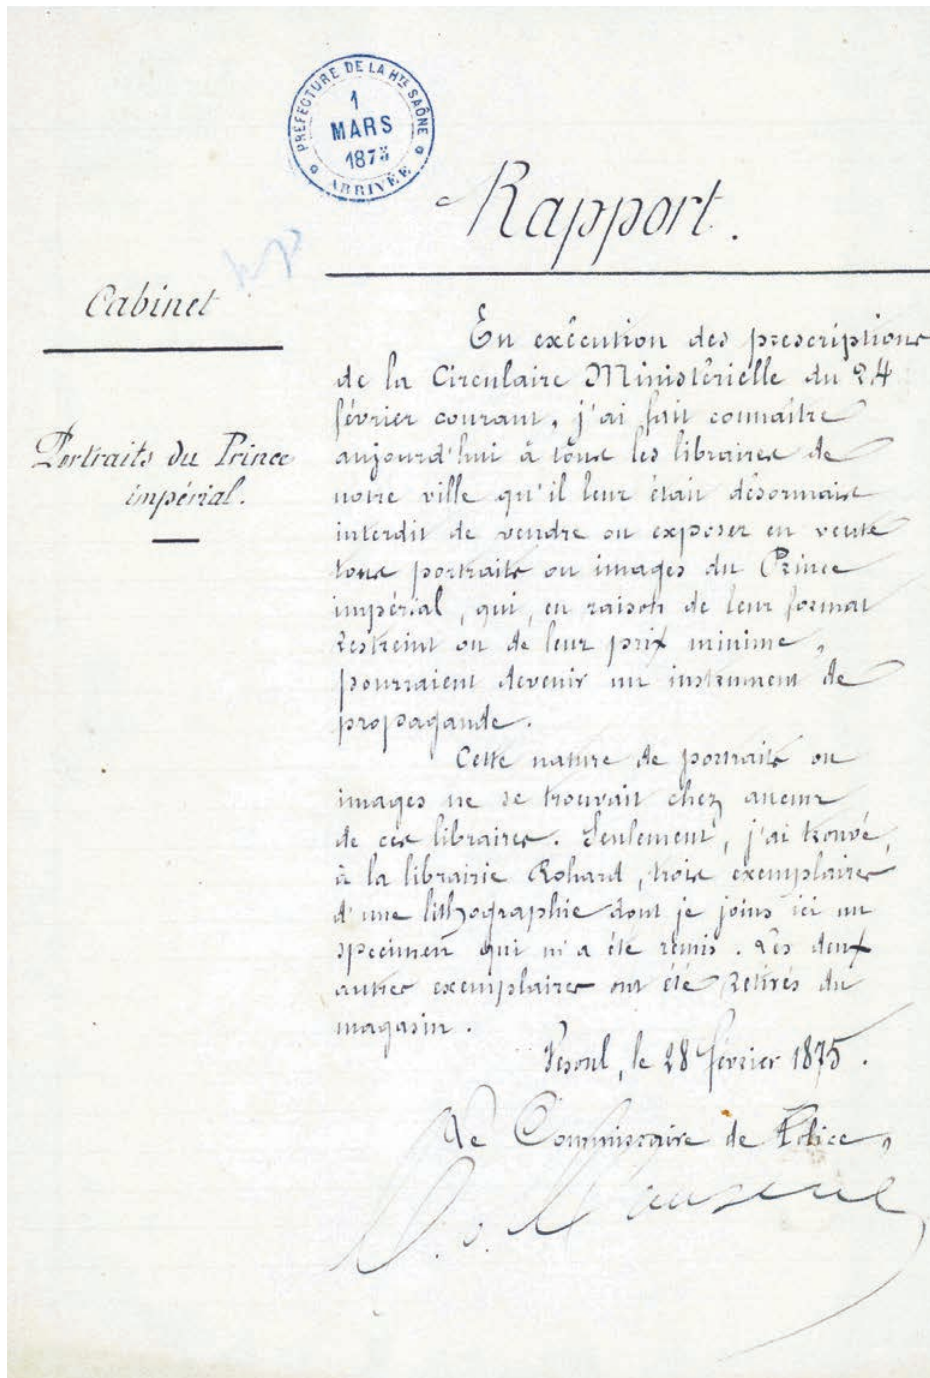 PRÉFECTURE DE LA HTE SAÔNE
1
MARS
1875
ARRIVÉE
Rapport.
Cabinet
Portraits du Prince
impérial.
En exécution des prescriptions
de la Circulaire Ministérielle du 24
février courant, j'ai fait connaître
aujourd'hui à tous les libraires de
notre ville qu'il leur était désormais
interdit de vendre ou exposer en vente
tous portraits ou images du Prince
impérial, qui, en raison de leur format
restreint ou de leur prix minime,
pourraient devenir un instrument de
propagande.
Cette nature de portraits ou
images ne se trouvait chez aucun
de ces libraires. Seulement, j'ai trouvé,
à la librairie Rohard, trois exemplaires
d'une lithographie dont je joins ici un
specimen qui m'a été remis. Les deux
autres exemplaires ont été retirés du
magasin.
Vesoul, le 28 février 1875.
Le Commissaire de Police,